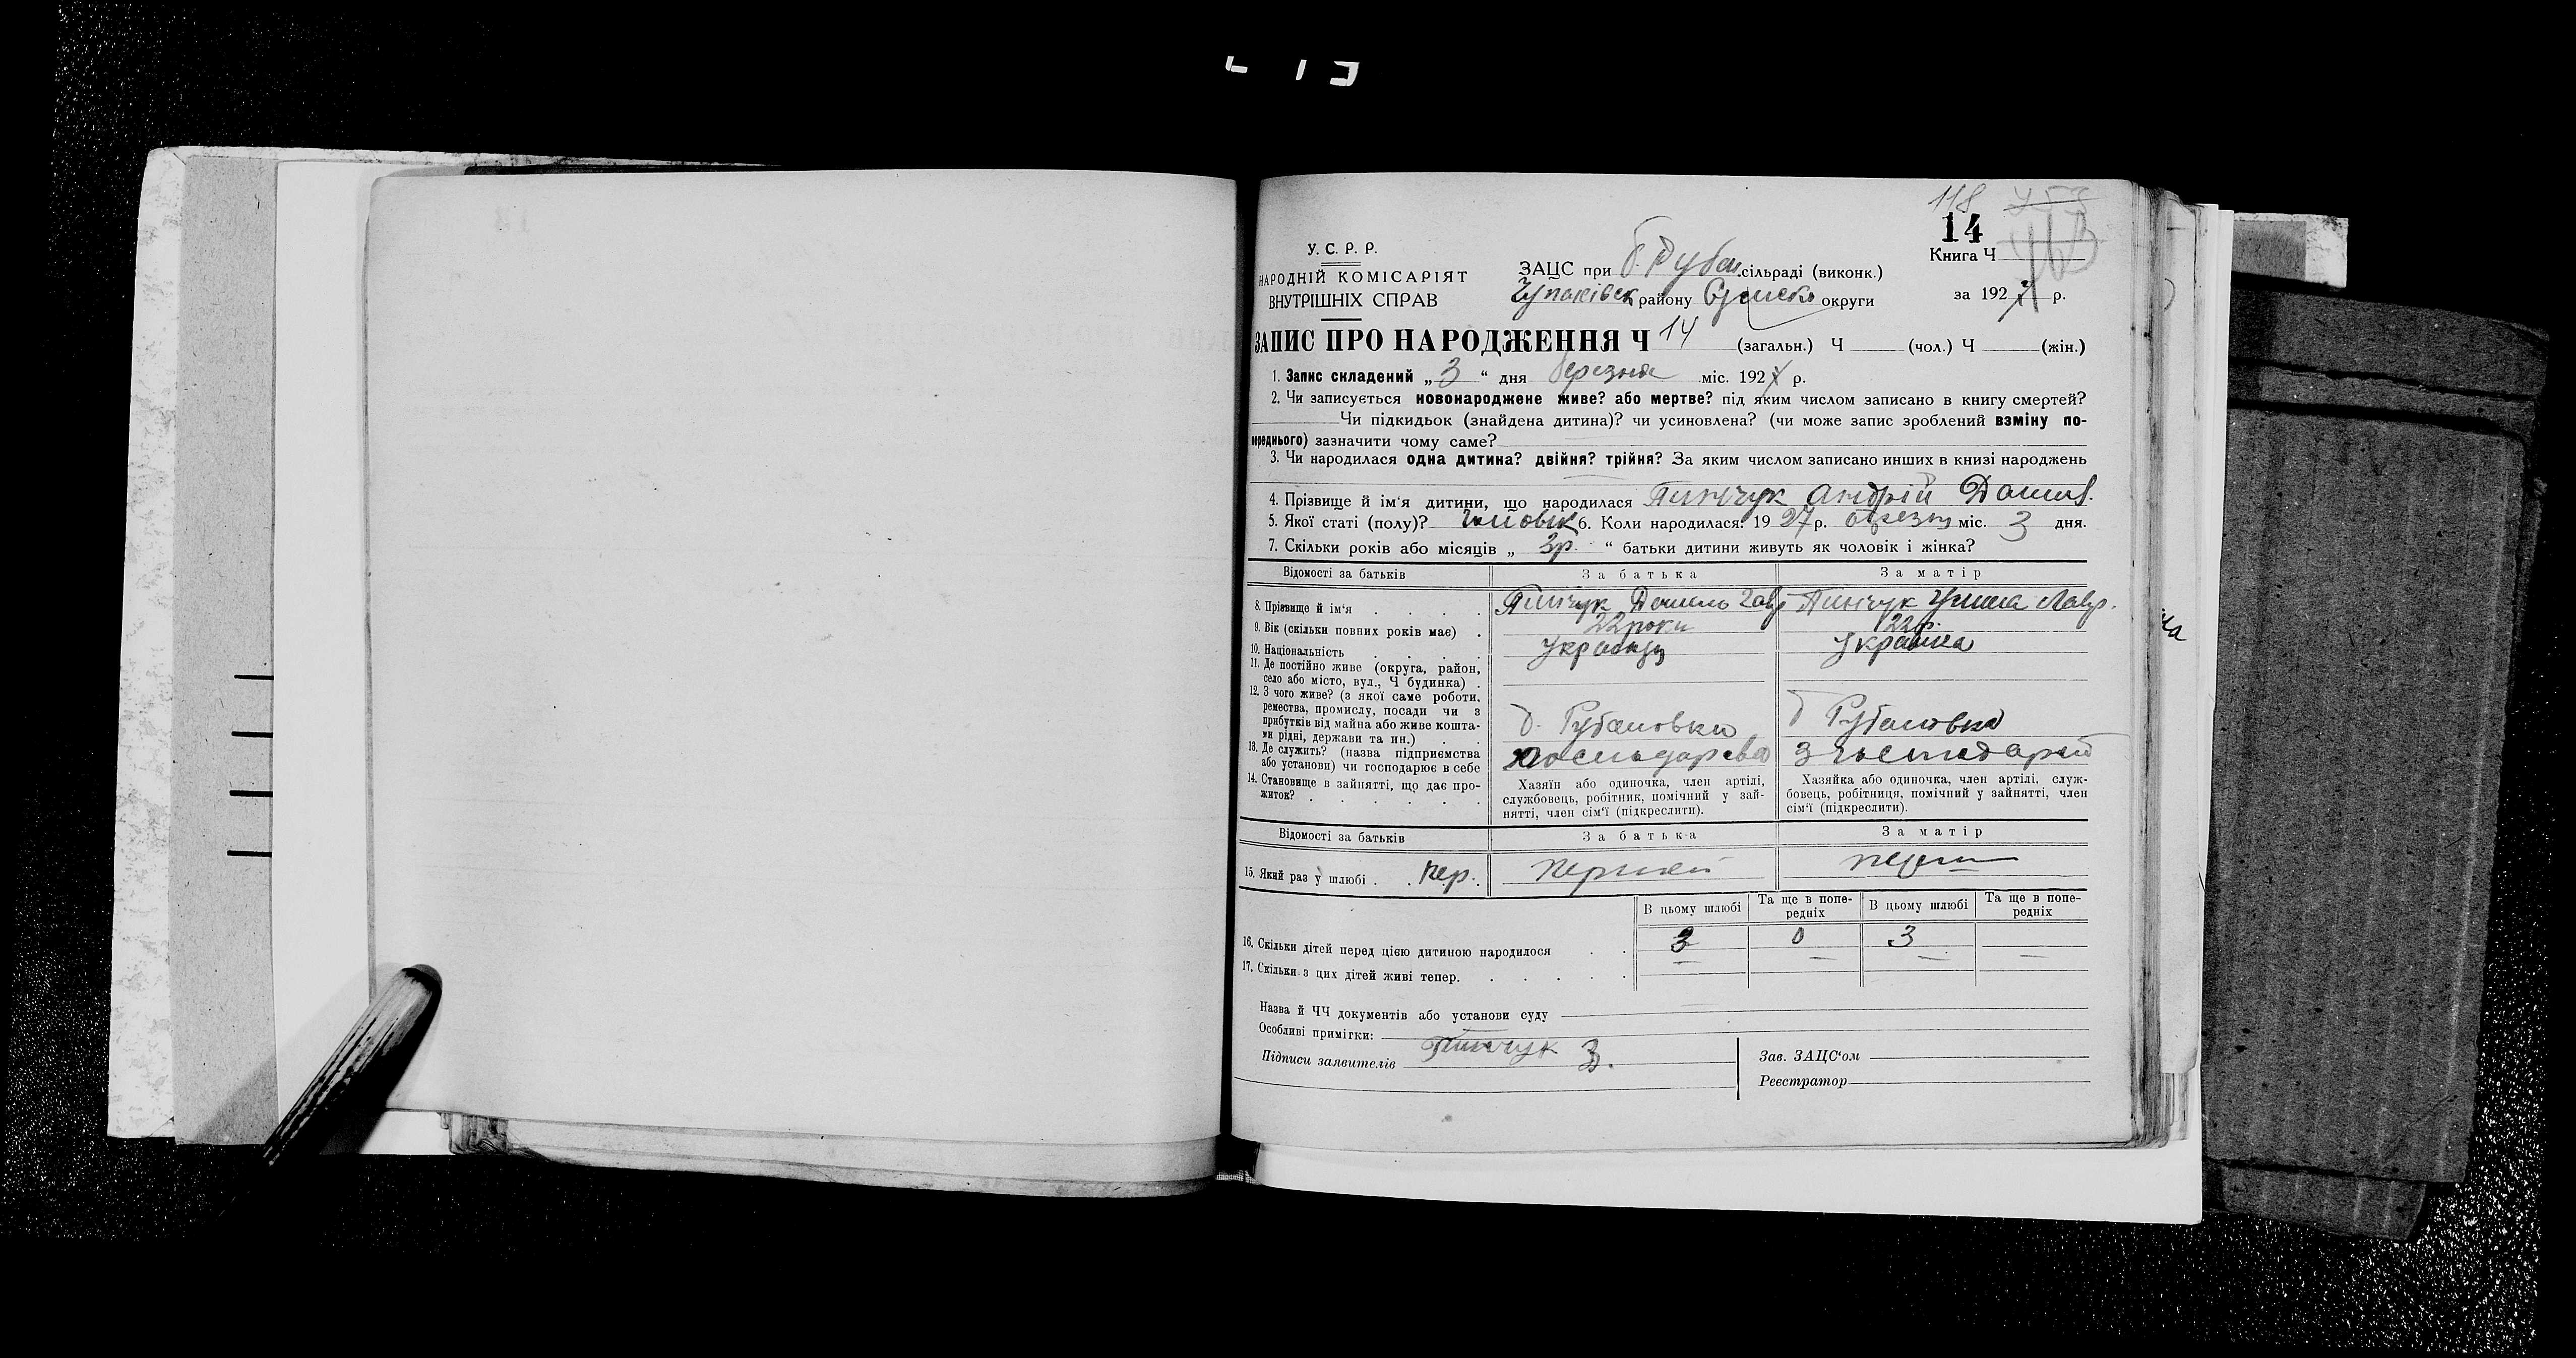 118
14
У. С. Р. Р.
НАРОДНІЙ КОМІСАРІЯТ
ВНУТРІШНІХ СПРАВ
ЗАЦС при б. Рубан. сільраді (виконк.)
району Сумсько округи
Книга Ч
за 1927 р.
ЗАПИС ПРО НАРОДЖЕННЯ Ч 14 (загальн.) Ч (чол.) Ч (жін.)
1. Запис складений „ 3 “ дня березня міс. 1927 р.
2. Чи записується новонароджене живе? або мертве? під яким числом записано в книгу смертей?
Чи підкидьок (знайдена дитина)? чи усиновлена? (чи може запис зроблений взміну по-
переднього) зазначити чому саме?
3. Чи народилася одна дитина? двійня? трійня? За яким числом записано инших в книзі народжень
4. Прізвище й ім‘я дитини, що народилася Пинчук Андрій Данил.
5. Якої статі (полу)? чоловік 6. Коли народилася: 19 27 р. березня міс. 3 дня.
7. Скільки років або місяців „ 3р. “ батьки дитини живуть як чоловік і жінка?
Відомості за батьків За батька За матір
8. Прізвище й ім‘я Пинчук Данило Гавр Пинчук Уляна Лавр.
9. Вік (скільки повних років має) 22 роки 22р.
10. Національність Українц Українка
11. Де постійно живе (округа, район,
село або місто, вул., Ч будинка)
12. З чого живе? (з якої саме роботи,
ремества, промислу, посади чи з
прибутків від майна або живе кошта-
ми рідні, держави та ин.)
б. Рубановка б Рубановка
13. Де служить? (назва підприємства
або установи) чи господарює в себе
14. Становище в зайнятті, що дає про-
житок?
Хазяїн або одиночка, член артілі,
службовець, робітник, помічний у зай-
нятті, член сім‘ї (підкреслити).
Хазяйка або одиночка, член артілі, служ-
бовець, робітниця, помічний у зайнятті, член
сім‘ї (підкреслити).
Відомості за батьків За батька За матір
15. Який раз у шлюбі Пер. Перший перш
В цьому шлюбі Та ще в попе-редніх В цьому шлюбі Та ще в попе-редніх
16. Скільки дітей перед цією дитиною народилося 3 0 3
17. Скільки з цих дітей живі тепер.
Назва й ЧЧ документів або установи суду
Особливі примітки:
Підписи заявителів Пинчук
Зав. ЗАЦС‘ом
Реєстратор